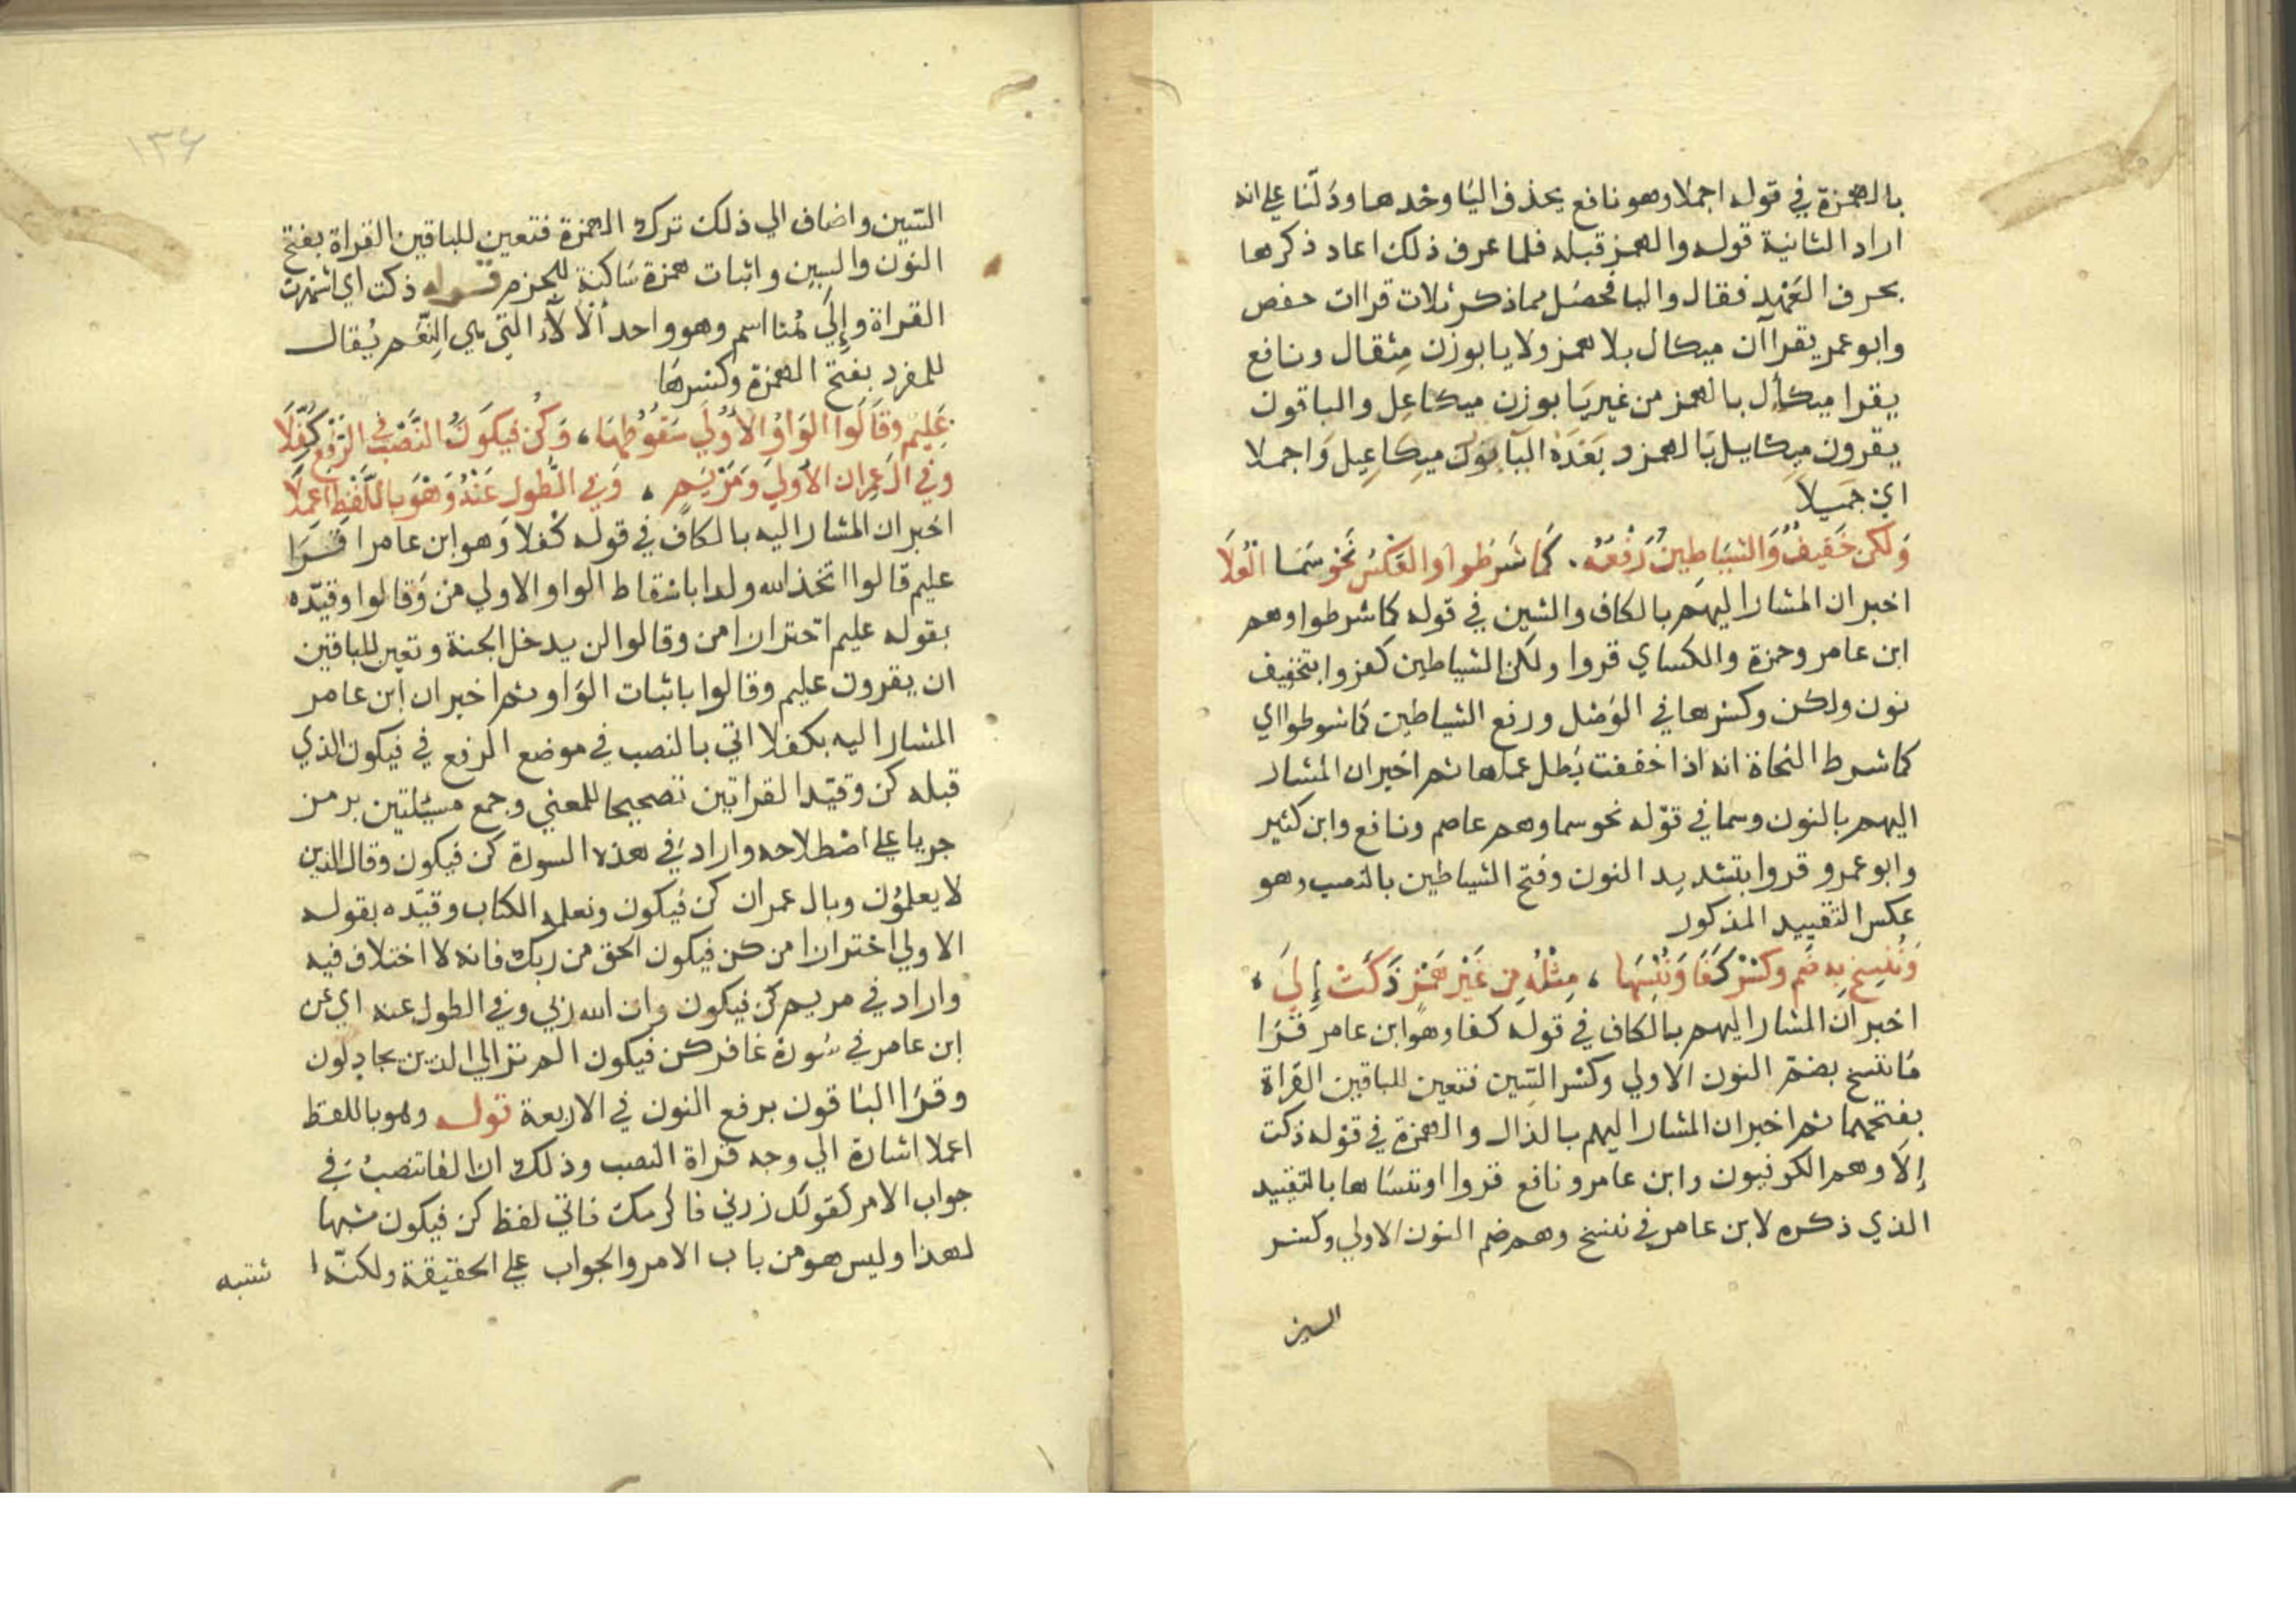 بالهمزة في قوله اجملا وهو نافع يحذف اليا وحدها ودلنا على انه
اراد الثانية قوله والهمز قبله فلما عرف ذلك اعاد ذكرها
بحرف العهد فقال واليا فحصل مما ذكر ثلاث قراات حفص
وابو عمر يقرآن ميكال بلا همز ولا يا بوزن مثقال ونافع
يقرا ميكأل بالهمز من غير يا بوزن ميكاعل والباقون
يقرون ميكايل بالهمز وبعده اليا بوزن ميكاعيل واجملا
اي جميلا
وَلكن خَفِيفٌ وَالشَّيَاطِينُ رَفْعُهُ . كَمَا شَرَطُوا وَالعَكْسُ نَحْوٌ سَمَا العُلَا
اخبر ان المشار اليهم بالكاف والشين في قوله كما شرطوا وهم
ابن عامر وحمزة والكساي قروا ولكن الشياطين كفروا بتخفيف
نون ولكن وكسرها في الوصل ورفع الشياطين كما شرطوا اي
كما شرط النحاة انه اذا خففت بطل عملها ثم اخبر ان المشار
اليهم بالنون وسما في قوله نحو سما وهم عاصم ونافع وابن كثير
وابو عمرو قروا بتشديد النون وفتح الشياطين بالنصب وهو
عكس التقييد المذكور
وَنُنسِخ بِهِ ضَم وَكَسْرٌ كَفَا وَنُنْسِهَا ، مِثْلُهُ مِن غَيْرِ هَمْزٍ ذَكَتْ إِلَي ،
اخبر ان المشار اليهم بالكاف في قوله كفا وهو ابن عامر قرا
ما ننسخ بضم النون الاولي وكسر السين فتعين للباقين القراة
بفتحهما ثم اخبر ان المشار اليهم بالذال والهمزة في قوله ذكت
إلا وهم الكوفيون وابن عامر ونافع قروا او ننساها بالتقييد
الذي ذكره لابن عامر في ننسخ وهم ضم النون الاولي وكسر
السين
١٣٤
السين واضاف الي ذلك ترك الهمزة فتعين للباقين القراة بفتح
النون والسين واثبات همزة ساكنة للجزم قوله ذكت اي اشتهرت
القراة وإلَي هُنا اسم وهو واحد ألآلاء التي هي النِّعَم يُقال
للمفرد بفتح الهمزة وكسرها
عَلِيم وقَالُوا الوَاوُ الاُولَي سُقُوطُهَا ، وَكُن فَيَكُونُ النَّصْبُ في الرَّفْعِ كُفِّلَا
وَفي ال عِمران الاُولَي وَمَرْيَم ، وَفي الطَّوْلِ عَنْهُ وَهْوَ بِاللَّفْظِ اُعْمِلَا
اخبر ان المشار اليه بالكاف في قوله كفلا وهو ابن عامر قرا
عليم قالوا اتخذ الله ولدا باسقاط الواو الاولي من وقالوا وقيّده
بقوله عليم احترازا من وقالوا لن يدخل الجنة وتعين للباقين
ان يقرون عليم وقالوا باثبات الواو ثم اخبر ان ابن عامر
المشار اليه بكفلا اتي بالنصب في موضع الرفع في فيكون الذي
قبله كن وقيّد القراتين تصحيحا للمعني وجمع مسيلتين برمز
جريا على اصطلاحه واراد في هذه السورة كن فيكون وقال الذين
لا يعلمون وبال عمران كن فيكون ونعلمه الكتاب وقيّده بقوله
الاولي احترازا من كن فيكون الحق من ربك فانه لا اختلاف فيه
واراد في مريم كن فيكون وان الله ربي وفي الطول عنه اي عن
ابن عامر في سورة غافر كن فيكون الم تر الي الذين يجادلون
وقرا الباقون برفع النون في الاربعة قوله وهو باللفظ
اعملا اشارة الي وجه قراة النصب وذلك ان الفا تنصب في
جواب الامر كقولك زرني فاكرمك فاتي لفظ كن فيكون مشبها
لهذا وليس هو من باب الامر والجواب على الحقيقة ولكنه